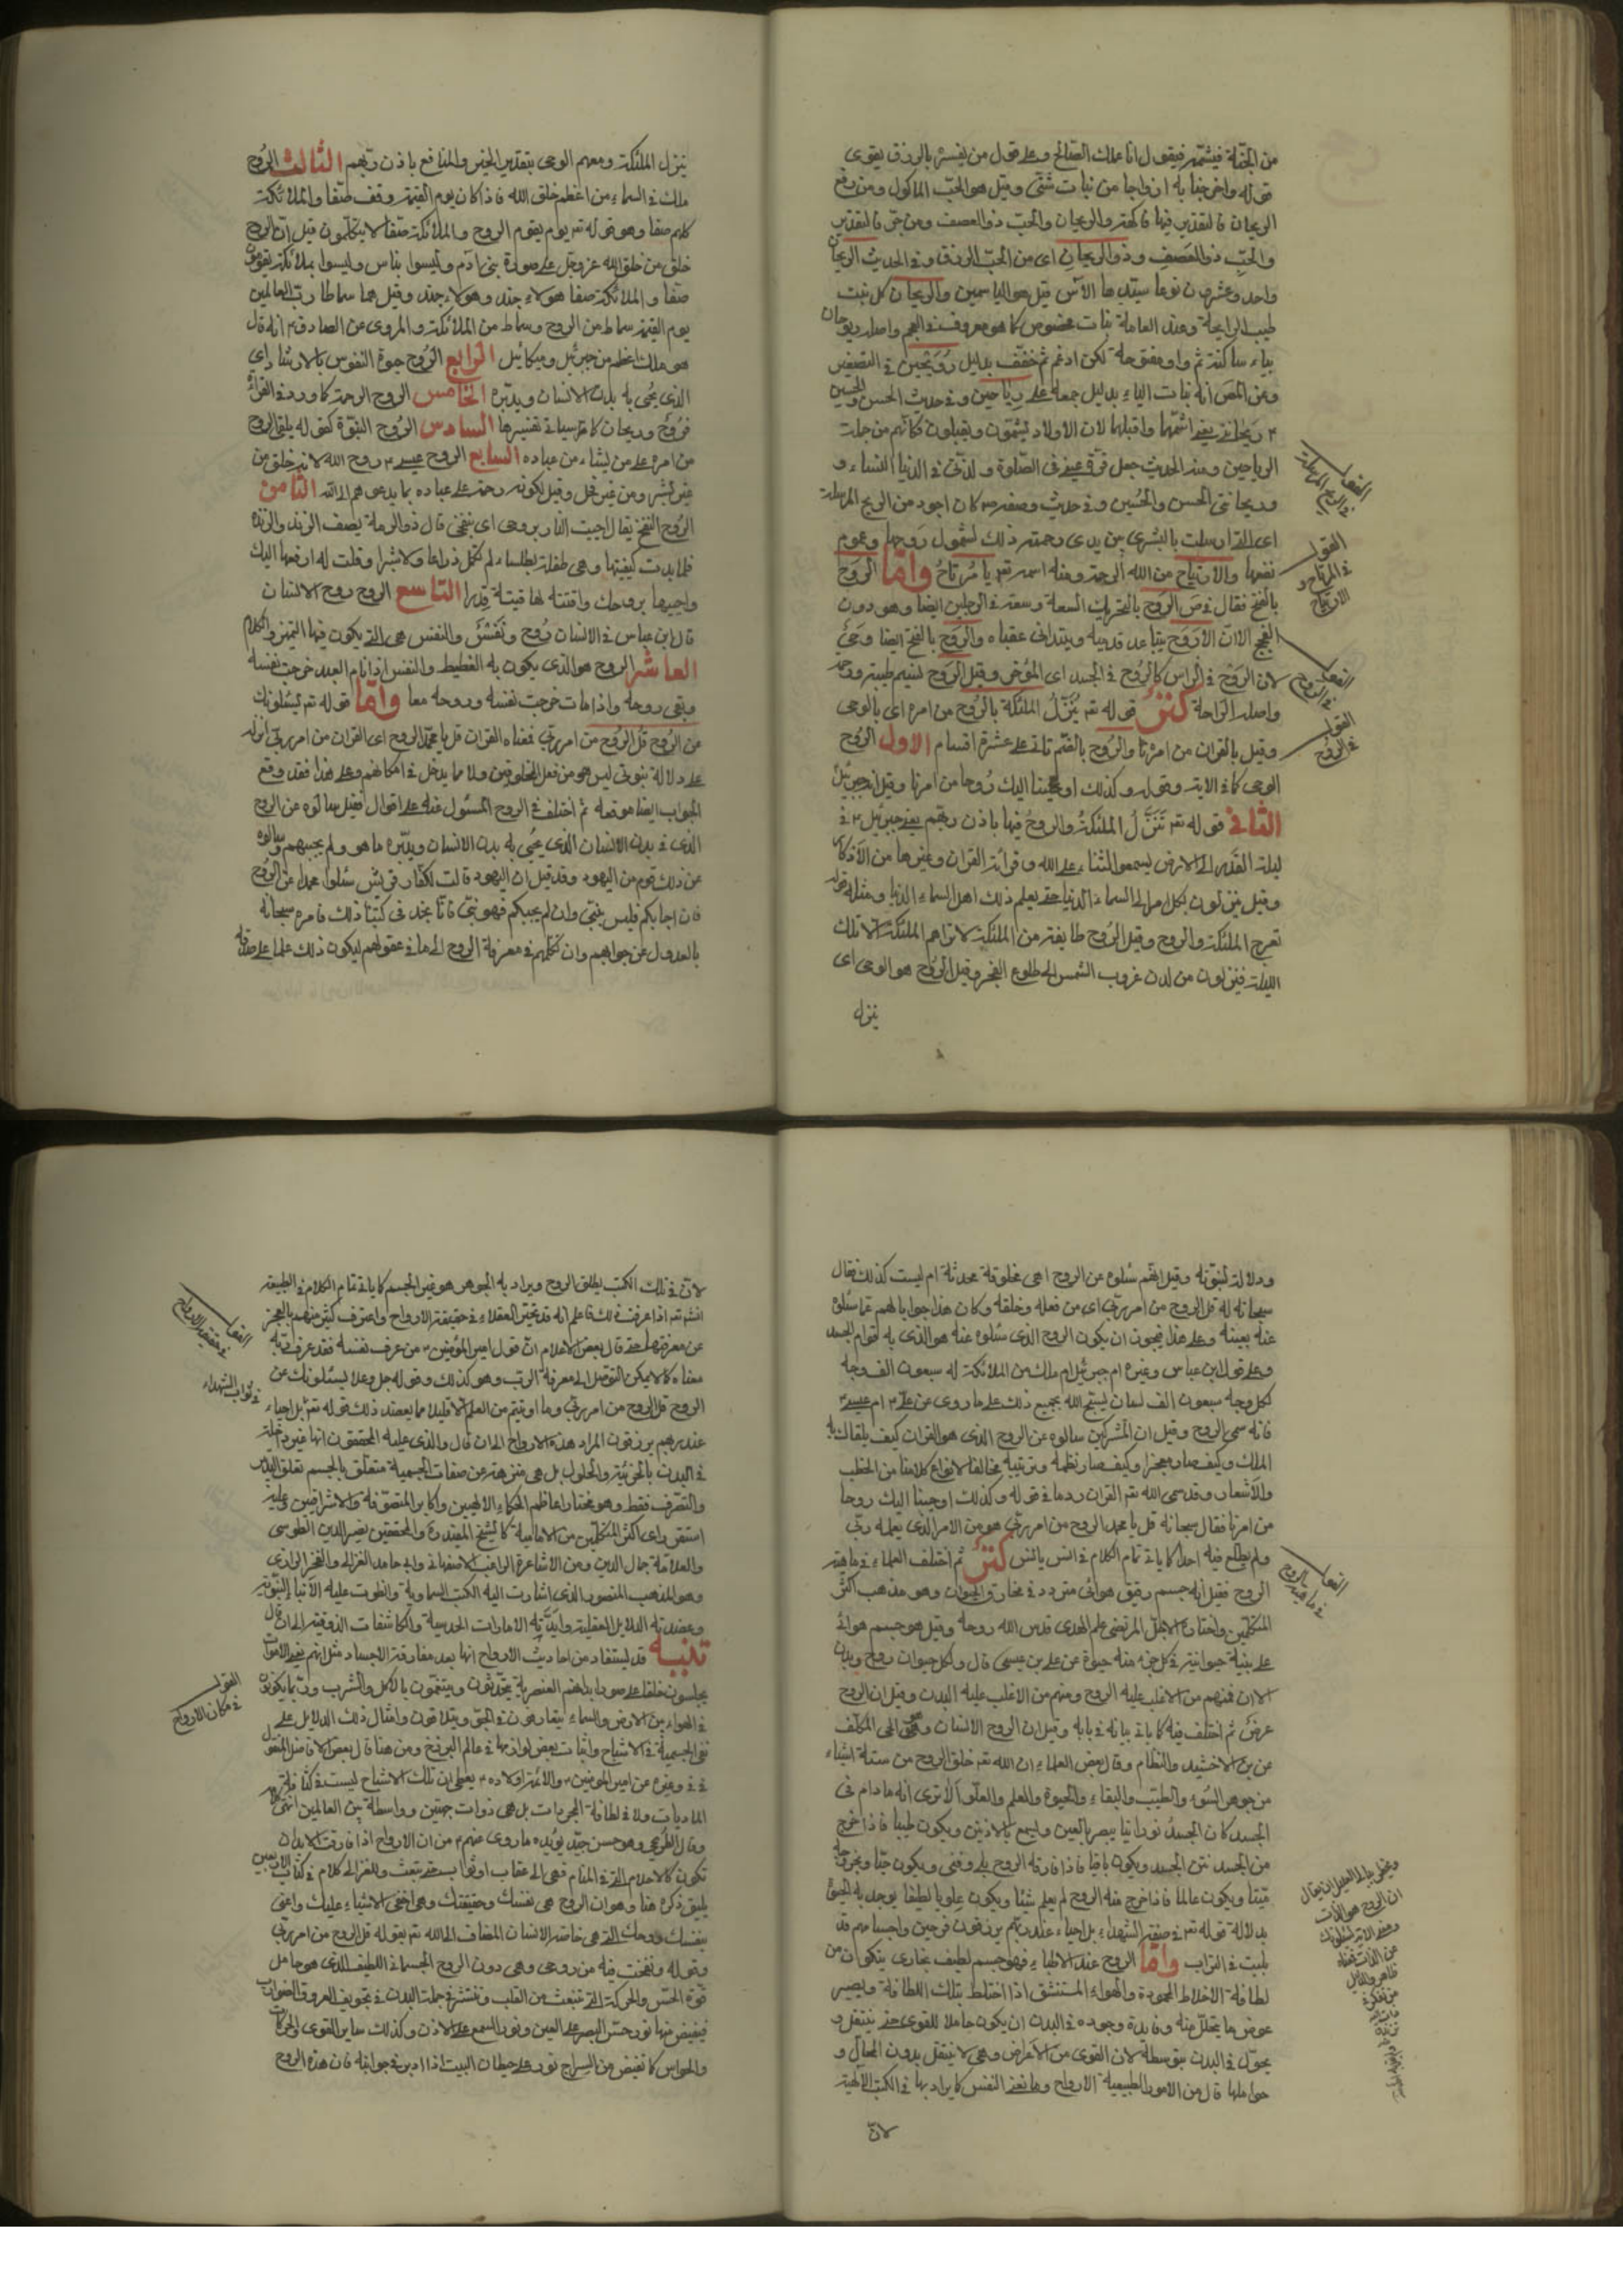 من الجنّة فيشمّه فيقول انا عملك الصّالح وعلى قول من يفسّره بالرزق يقوى
قوله واخرجنا به ازواجا من نبات شتّى وقيل هو الحبّ الماكول ومن رفع
الريحان فالتقدير فيها فاكهة والريحان والحبّ ذو العصف ومن جرّ فالتقدير
والحبّ ذو العصف وذو الريحان اى من الحبّ الرزق وفى الحديث الريحان
واحد وعشرون نوعا سيّدها الآس قيل هو الياسمين والريحان كل نبت
طيب الرايحة وعند العامة نبات مخصوص كما هو معروف فى العجم واصله ريوحان
بياء ساكنة ثم واو مفتوحة لكن ادغم ثم خفّف بدليل رُوَيْحِين فى التصغير
وعن المص انه بنات الياء بدليل جمعه على رياحين وفى حديث الحسن والحسين
ع ريحانتى يعنى اشمّها واقبلها لان الاولاد يشمّون ويقبلون فكانّهم من جملة
الرياحين ومنه الحديث جعل قرّة عينى فى الصّلوة ولذّتى فى الدنيا النساء و
وريحانتى الحسن والحُسين وفى حديث وصفه ص كان اجود من الريح المرسلة
اى التى ارسلت بالبشرى بين يدى رحمته ذلك لشمول روحها وعموم
نفعها والارتياح من الله الرحمة ومنه اسمه تعه يا مُرتاحُ وامّا الرَوح
بالفتح فقال فى ص الرَوَح بالتحريك السعة وسعة فى الرجلين ايضا وهو دون
الفحج الا انّ الاروَح يتباعد قدميه ويتدانى عقباه والرَوح بالفتح ايضا
لان الرَوح فى الراس كالرُوح فى الجسد اى المُوخى وقيل الرَوح نسيم طيبة
واصله الراحة كنز قوله تعه يُنَزِّلُ الملئكة بالرُوح من امره اى بالوحى
وقيل بالقران من امرنا والرُوح بالضّم تاتى على عشرة اقسام الاول الرُوح
الوحى كما فى الاية وقوله وكذلك اوحينا اليك رُوحا من امرنا وقيل انه جبرئيل
الثانى قوله تعه تَنَزَّلُ الملئكةُ والروحُ فيها باذن ربّهم يعنى جبرئيل ع فى
ليلة القدر الى الارض ليسمعوا الثناء على الله وقرائة القران وغيرها من الاذكار
وقيل ينزلون بكل امر الى السماء الدنيا حتى يعلم ذلك اهل السماء الدنيا ومثله قوله
تعرج الملئكة والروح وقيل الرُوح طايفة من الملئكة لا تراهم الملئكة الا تلك
الليلة فينزلون من لدن غروب الشمس الى طلوع الفجر وقيل الرُوح هو الوحى اى
ينزل
القول فى المرتاح و الارتياح
القول فى الرَوح
القول فى الرُوح
ينزل الملئكة ومعهم الوحى بتقدير الخير والمنافع باذن ربّهم الثالث الرُوح
ملك فى السماء من اعظم خلق الله فاذا كان يوم القيمة وقف صّفا والملائكة
كلهم صفا وهو قوله تعه يوم يقوم الروح والملائكة صّفا لا يتكلّمون قيل انّ الروح
خلق من خلق الله عز وجل على صورة بنى ادم وليسوا بناس وليسوا بملائكة يقومون
صّفا والملائكة صفا هولاء جند وهولاء جند وقيل هما سماطا ربّ العالمين
يوم القيمة سماط من الروح وسماط من الملائكة والمروى عن الصادق ع انه قال
هو ملك اعظم من جبرئيل وميكائيل الرابع الرُوح حيوة النفوس بالارشاد اى
الذى يحُيى به بدن الانسان ويدبّره الخامس الروح الرحمة كما ورد فى القراءة
فرُوح وريحان كما مر سيأتى تفسيرها السادس الرُوح النبّوة كقوله يلقى الروح
من امره على من يشاء من عباده السابع الروح عيسى ع روح الله لانه خلق من
غير بشر ومن غير فحل وقيل لكونه رحمة على عباده بما يدعوهم الى الله الثامن
الرُوح النفخ يقال احييت النار بروحى اى بنفخى قال ذو الرمة يصف الزند والزندة
فلما بدت كفّنتها وهى طفلة بطلساء لم تكمل ذراعا ولا شبرا وقلت له ارفعها اليك
واحييها بروحك واقتته لها قيتة قِدرا التاسع الروح روح الانسان
قال ابن عباس فى الانسان رُوح ونَفسُ والنفس هى التى يكون فيها التميز والكلام
العاشر الروح هو الذى يكون به الغطيط والنفس اذا نام العبد خرجت نفسه
وبقى روحه واذا مات خرجت نفسه وروحه معا وامّا قوله تعه يسئلونك
عن الرُوح قل الرُوح من امر ربّى فمعناه القران قل يا محمّد الروح اى القران من امر ربّى انزله
على دلالة نبوتى ليس هو من فعل المخلوقين ولا مما يدخل فى امكانهم وعلى هذا فقد وقع
الجواب ايضا موقعه ثم اختلف فى الروح المسئول عنه على اقوال فقيل سالوه عن الروح
الذى فى بدن الانسان الذى يحُيى به بدن الانسان ويدبّره ما هو ولم يجبهم وسالوه
عن ذلك قوم من اليهود وقد قيل ان اليهود قالت لكفّار قريش سئلوا محمدا عن الرُوح
فان اجابكم فليس بنبّى وان لم يجبكم فهو نبّى فانّا نجد فى كتبنا ذلك فامره سبحانه
بالعدول عن جوابهم وان تكلّهم فى معرفة الروح الى ما فى عقولهم ليكون ذلك علما على صدقه
ودلالة لنبّوته وقيل انهّم سئلوه عن الروح اهى مخلوقة محدثة ام ليست كذلك فقال
سبحانه له قل الروح من امر ربّى اى من فعله وخلقه وكان هذا جوابا لهم عمّا سئلوه
عنه بعينه وعلى هذا فيجوز ان يكون الروح الذى سئلوه عنه هو الذى به قوام الجسد
وعلى قول ابن عباس وغيره ام جبرئيل ام ملك من الملائكة له سبعون الف وجه
لكل وجه سبعون الف لسان يسبّح الله بجميع ذلك على ما روى عن على ع ام عيسى ع
فانه سمى الروح وقيل ان المشركين سالوه عن الروح الذى هو القران كيف يلقاك به
الملك وكيف صار معجزا وكيف صار نظمه وترتيبه مخالفا لانواع كلامنا من الخطب
والاشعار وقد سمى الله تعه القران روحا فى قوله وكذلك اوحينا اليك روحا
من امرنا فقال سبحانه قل يا محمد الروح من امر ربّى هو من الامر الذى يعلمه ربّى
ولم يطلع فيه احدا كما ياتى تمام الكلام فى انس يانس كنز ثم اختلف العلماء فى ماهية
الروح فقيل انه جسم رقيق هوائى متردد فى مخارق الحيوان وهو مذهب اكثر
المتكلّمين واختاره الاجلّ المرتضى علم الهدى قدس الله روحه وقيل هو جسم هوائى
على بنية حيوانية فى كل جزء منه حيوة عن على بن عيسى قال ولكل حيوان روح وبدن
الا ان فمنهم من الاغلب عليه الروح ومنهم من الاغلب عليه البدن وقيل ان الروح
عرضٌ ثم اختلف فيه كما ياتى بيانه فى بابه وقيل ان الروح الانسان وهو الحى المكلّف
عن بن الاخشيد والنظّام وقال بعض العلماء ان الله تعه خلق الروح من ستة اشياء
من جوهر النور والطيب والبقاء والحيوة والعلم والعلّو الا ترى انّه ما دام فى
الجسد كان الجسد نورانيا يبصر بالعين ويسمع بالاذنين ويكون طيبا فاذا خرج
من الجسد نتن الجسد ويكون باقيا فاذا فارقه الروح بلى وفنى ويكون حيّا وبخروجه
ميّتا ويكون عالما فاذا خرج منه الروح لم يعلم شيئا ويكون علويا لطيفا توجد به الحيوة
بدلالة قوله تعه فى صفة الشهداء بل احياء عند ربّهم يرزقون فرحين واجسامهم قد
بليت فى التراب وامّا الروح عند الاطباء فهو جسم لطيف بخارى يتكوّن من
لطافة الاخلاط المحمودة والهواء المستنشق اذا اختلط بتلك اللطافة ويصير
عوض ما يتحلل منه وفايدة وجوده فى البدن ان يكون حاملا للقوى حتى ينتقل و
يحوّل فى البدن بتوسطه لان القوى من الاعراض وهى لا ينتقل بدون المحال و
حواملها قال من الامور الطبيعية الارواح وما نعنى النفس كما يراد بها فى الكتب الالهية
لانّ
القول فى ماهية الروح
لانّ فى تلك الكتب يطلق الروح ويراد به الجوهر هو غير الجسم كما ياتى تمام الكلام فى الطبيعة
انشه تعه اذا عرفت ذلك فاعلم انّه قد تحيّر العقلاء فى حقيقة الارواح واعترف كثير منهم بالعجز
عن معرفتها حتى قال بعض الاعلام انّ قول امير المؤمنين ع من عرف نفسه فقد عرف ربّه
معناه كما لا يمكن التوصل الى معرفة الرب وهو كذلك وقوله جل وعلا يسئلونك عن
الروح قل الروح من امر ربى وما اوتيتم من العلم الا قليلا مما يعضد ذلك قوله تعه بل احياء
عند ربهم يرزقون المراد هذه الارواح الى ان قال والذى عليه المحققون انها غير داخلة
فى البدن بالجزئية والحلول بل هى منزهة عن صفات الجسمية متعلّق بالجسم تعلق التدبير
والتصرف فقط وهو مختار اعاظم الحكماء الالهيين واكابر المتصّوفة والاشراقيين وعليه
استقر راى اكثر المتكلّمين من الامامية كالشيخ المفيد ره والمحققين نصير الدين الطوسى
والعلامة جمال الدين ومن الاشاعرة الراغب الاصفهانى وابى حامد الغزالى والفخر الرازى
وهو المذهب المنصور الذى اشارت اليه الكتب السماوية وانطوت عليه الانباء النبّوية
وعضدته الدلايل العقلية وايّدته الامارات الحدسية والمكاشفات الذوقية الى ان قال
تنبيه قد يستفاد من احاديث الارواح انها بعد مفارقة الاجساد مثل انهم يعنى الاموات
يجلسون حلقا على صور ابدانهم العنصرية يتحدّثون ويتنعّمون بالاكل والشرب وربّما يكونون
فى الهواء بين الارض والسماء يتعارفون فى الجّو ويتلاقون وامثال ذلك الدلايل على
نفى الجسمية فى الاشباح واثبات بعض لوازمها فى عالم البرزخ ومن هنا قال بعض الافاضل المنقول
فى فى وغيره عن امير المؤمنين ع والائمة اولاده ع يعطى ان تلك الاشباح ليست فى كثافة
الماديات ولا فى لطافة المجردات بل هى ذوات جهتين وواسطة بين العالمين انتهى
وقال الطريحى وهو حسن جيّد يؤيده ما روى عنهم ع من ان الارواح اذا فارقت الابدان
تكون كالاحلام التى فى المنام فهى الى عقاب او ثواب حتى تبعث وللغزالى كلام فى كتاب الاربعين
يليق ذكره هنا وهو ان الروح هى نفسك وحقيقتك وهى اخفى الاشياء عليك واعنى
بنفسك روحك التى هى خاصة الانسان المضاف الى الله تعه بقوله قل الروح من امر ربّى
وقوله ونفخت فيه من روحى وهى دون الروح الجسمانى اللطيف الذى هو حامل
قوة الحس والحركة التى تنبعث من القلب وتنتشر فى جملة البدن فى تجويف العروق الضوارب
فيفيض منها نور حسّ البصر على العين ونور السمع على الاذن وكذلك ساير القوى والحركات
والحواس كما تفيض من السراج نور على حيطان البيت اذا ادير فى جوانبه فان هذه الروح
القول فى حقيقة الارواح
فى ثواب الشهداء
القول فى مكان الارواح